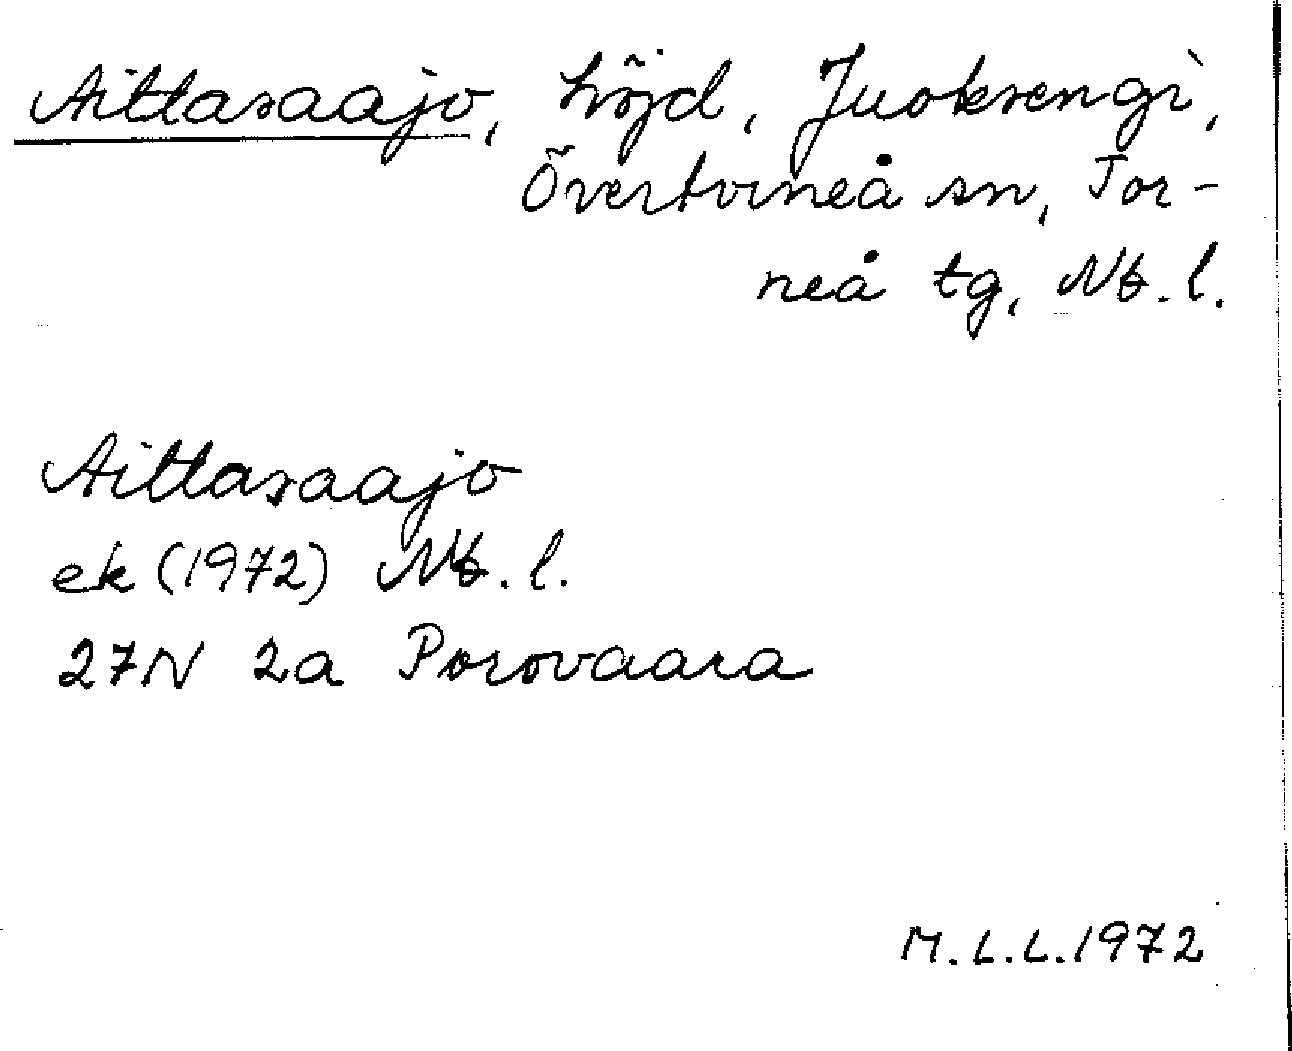 Aittasaajo, höjd, Juoksengi,
Övertorneå sn, Tor-
neå tg, Nb.l.
Aittasaajo
ek (1972) Nb.l.
27N 2a Porovaara
M.L.L.1972